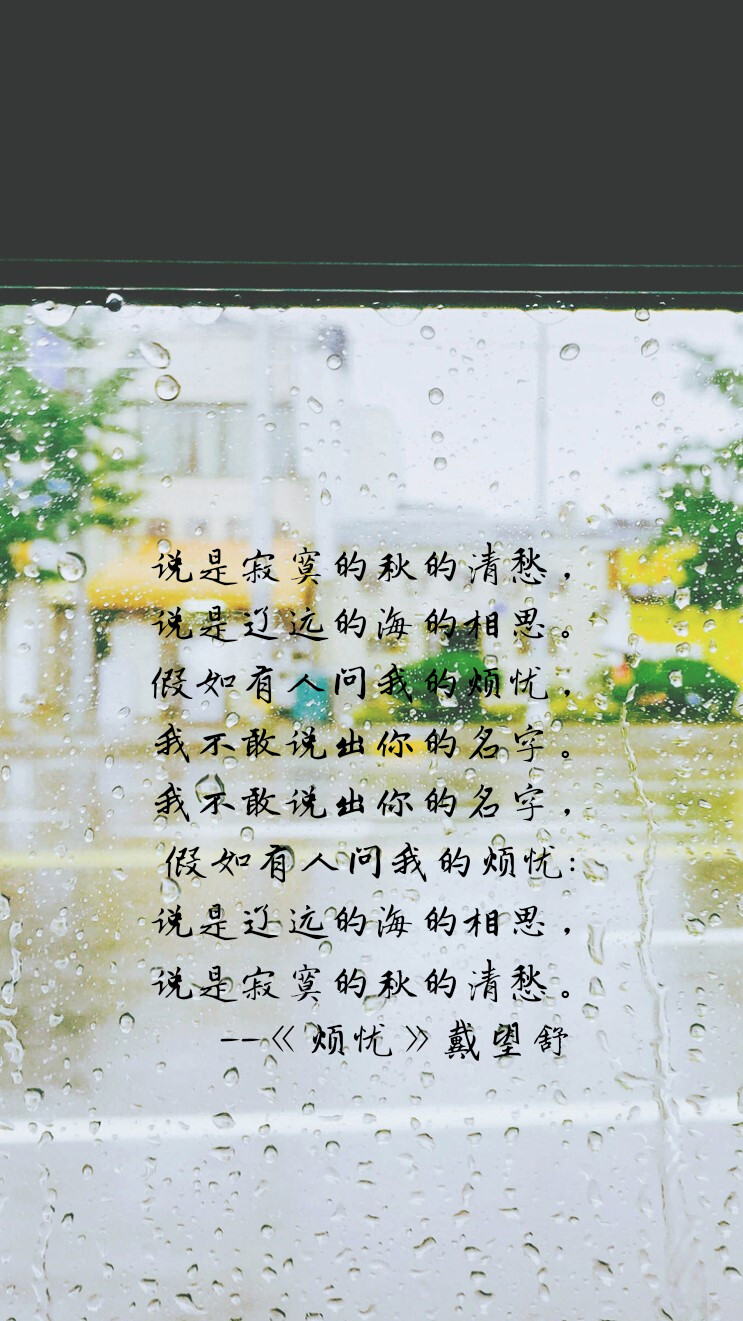 说是寂寞的秋的清愁，
说是辽远的海的相思。
假如有人问我的烦忧，
我不敢说出你的名字。
我不敢说出你的名字，
假如有人问我的烦忧：
说是辽远的海的相思，
说是寂寞的秋的清愁。
--《烦忧》戴望舒